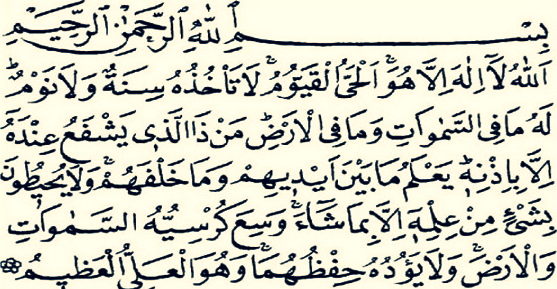 بِسْمِ اللّٰهِ الرَّحْمٰنِ الرَّحِيْمِ
اَللّٰهُ لَآ اِلٰهَ اِلَّا هُوَۚ اَلْحَىُّ الْقَيُّوْمُ ۚ لَا تَاْخُذُهٗ سِنَةٌ وَّلَا نَوْمٌ ؕ
لَهٗ مَا فِى السَّمٰوٰتِ وَمَا فِى الْاَرْضِؕ مَنْ ذَا الَّذِىْ يَشْفَعُ عِنْدَهٗٓ
اِلَّا بِاِذْنِهٖؕ يَعْلَمُ مَا بَيْنَ اَيْدِيْهِمْ وَمَا خَلْفَهُمْۚ وَلَا يُحِيْطُوْنَ
بِشَىْءٍ مِّنْ عِلْمِهٖٓ اِلَّا بِمَا شَآءَۚ وَسِعَ كُرْسِيُّهُ السَّمٰوٰتِ
وَالْاَرْضَۚ وَلَا يَئُوْدُهٗ حِفْظُهُمَاۚ وَهُوَ الْعَلِىُّ الْعَظِيْمُ